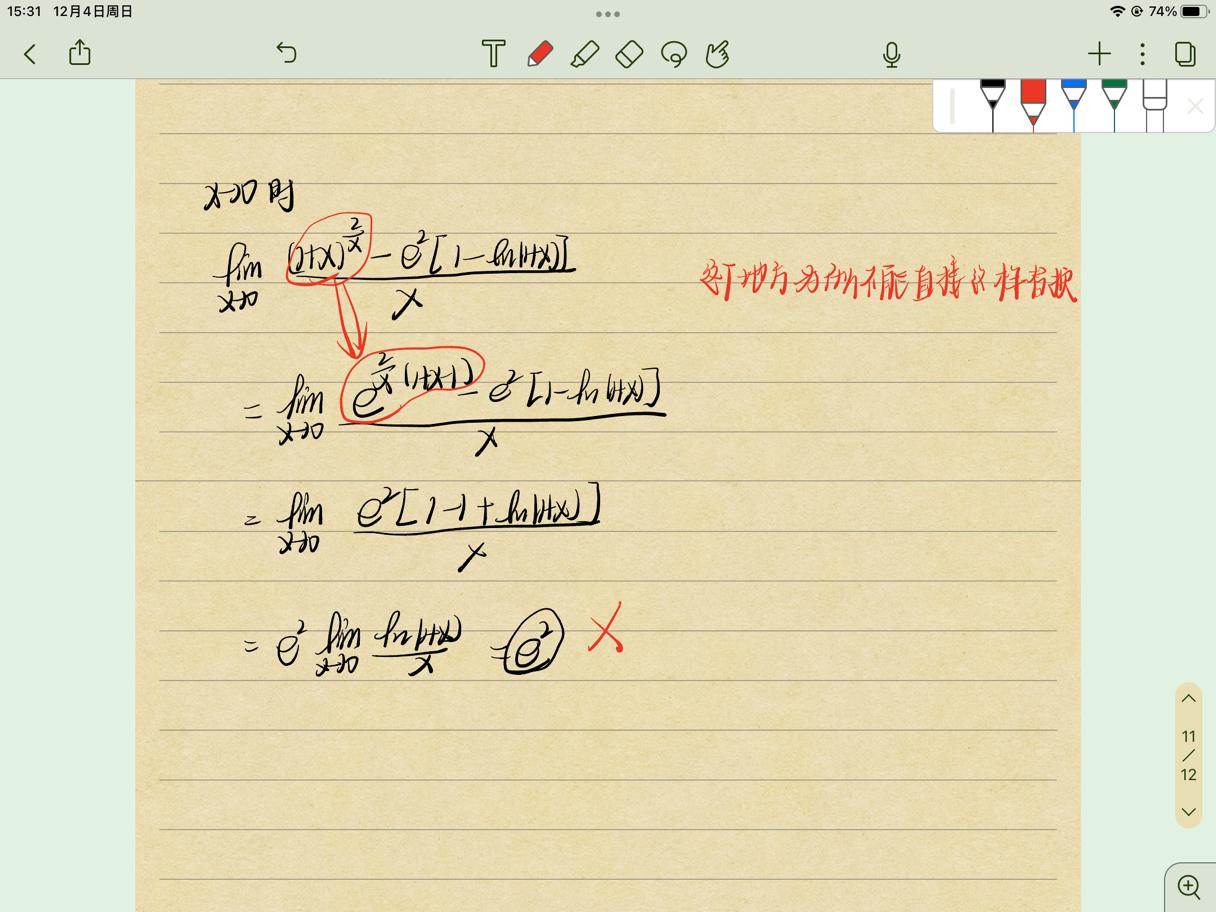 15:31 12月4日周日
74%
T
x→0 时
lim x→0 ((1+x)^(2/x) - e^2[1-ln(1+x)])/x
这个地方为什么不能直接这样替换
= lim x→0 (e^(2/x (1+x-1)) - e^2[1-ln(1+x)])/x
= lim x→0 (e^2[1-1+ln(1+x)])/x
= e^2 lim x→0 ln(1+x)/x = e^2 ×
11
/
12